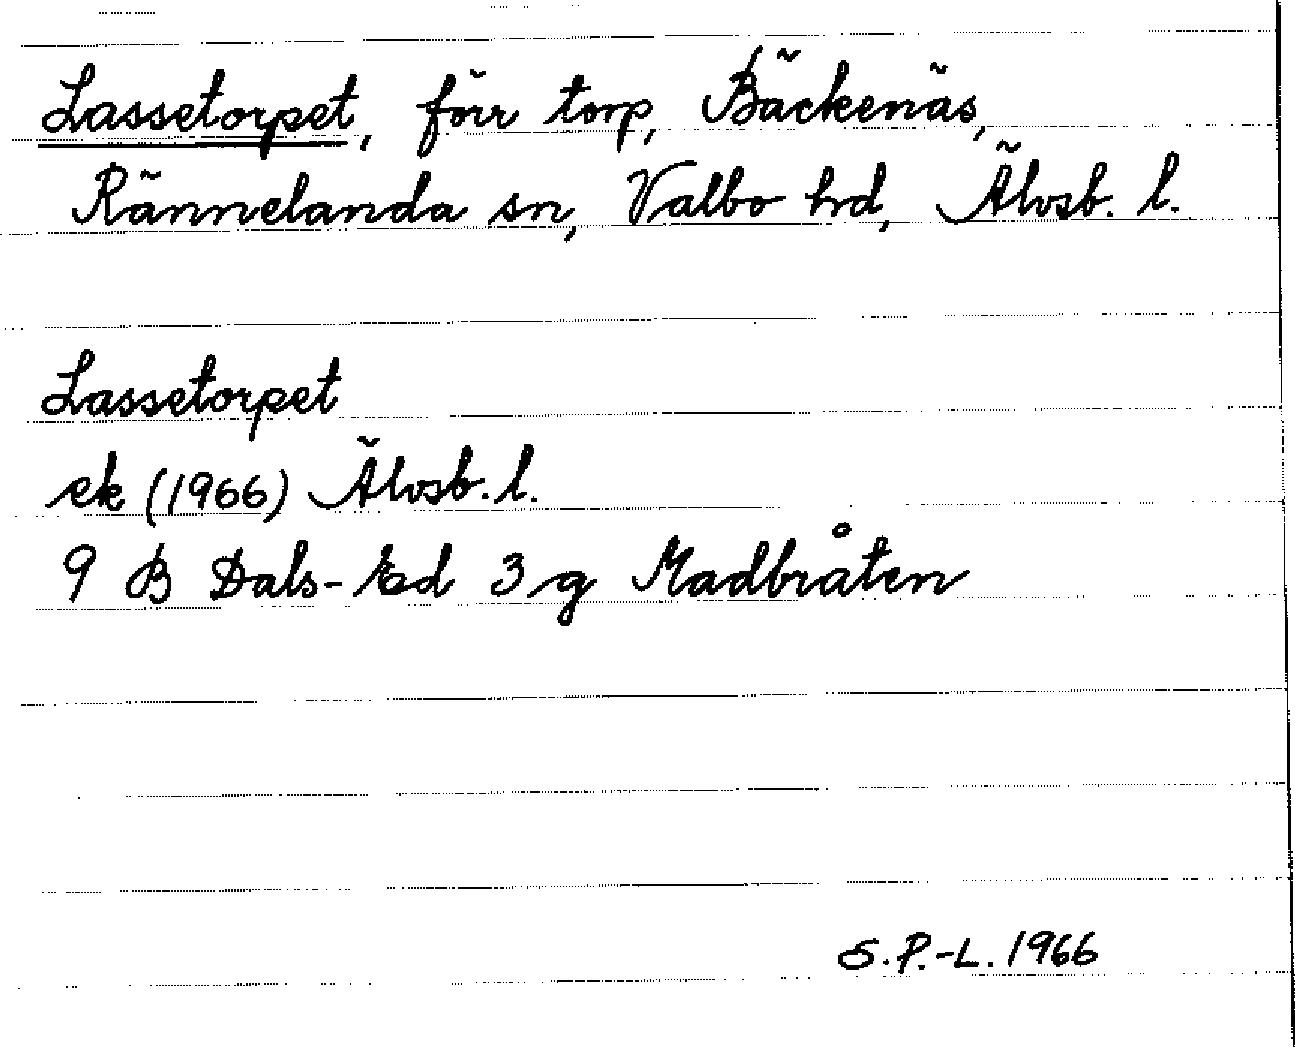 Lassetorpet, förr torp, Bäckenäs,
Rännelanda sn, Valbo hrd, Älvsb. l.
Lassetorpet
ek (1966) Älvsb. l.
9 B Dals-Ed 3 g Madbråten
S.P.-L. 1966